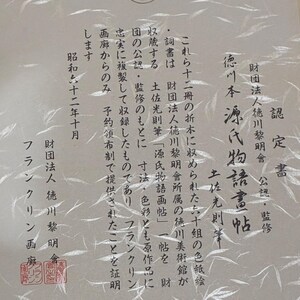 認定書
財団法人徳川黎明會 公認・監修
徳川本 源氏物語畫帖
土佐光則筆
これら十二冊の折本に収められた六十組の色紙絵
・詞書は 財団法人徳川黎明會所属の徳川美術館が
収蔵する 土佐光則筆「源氏物語画帖」を 財
団の公認・監修のもとに 寸法・色彩とも原作品に
忠実に複製して収録したものであり フランクリン
画廊からのみ 予約頒布制で提供されたことを証明
します
昭和六十二年十月
財団法人 徳川黎明會
フランクリン画廊